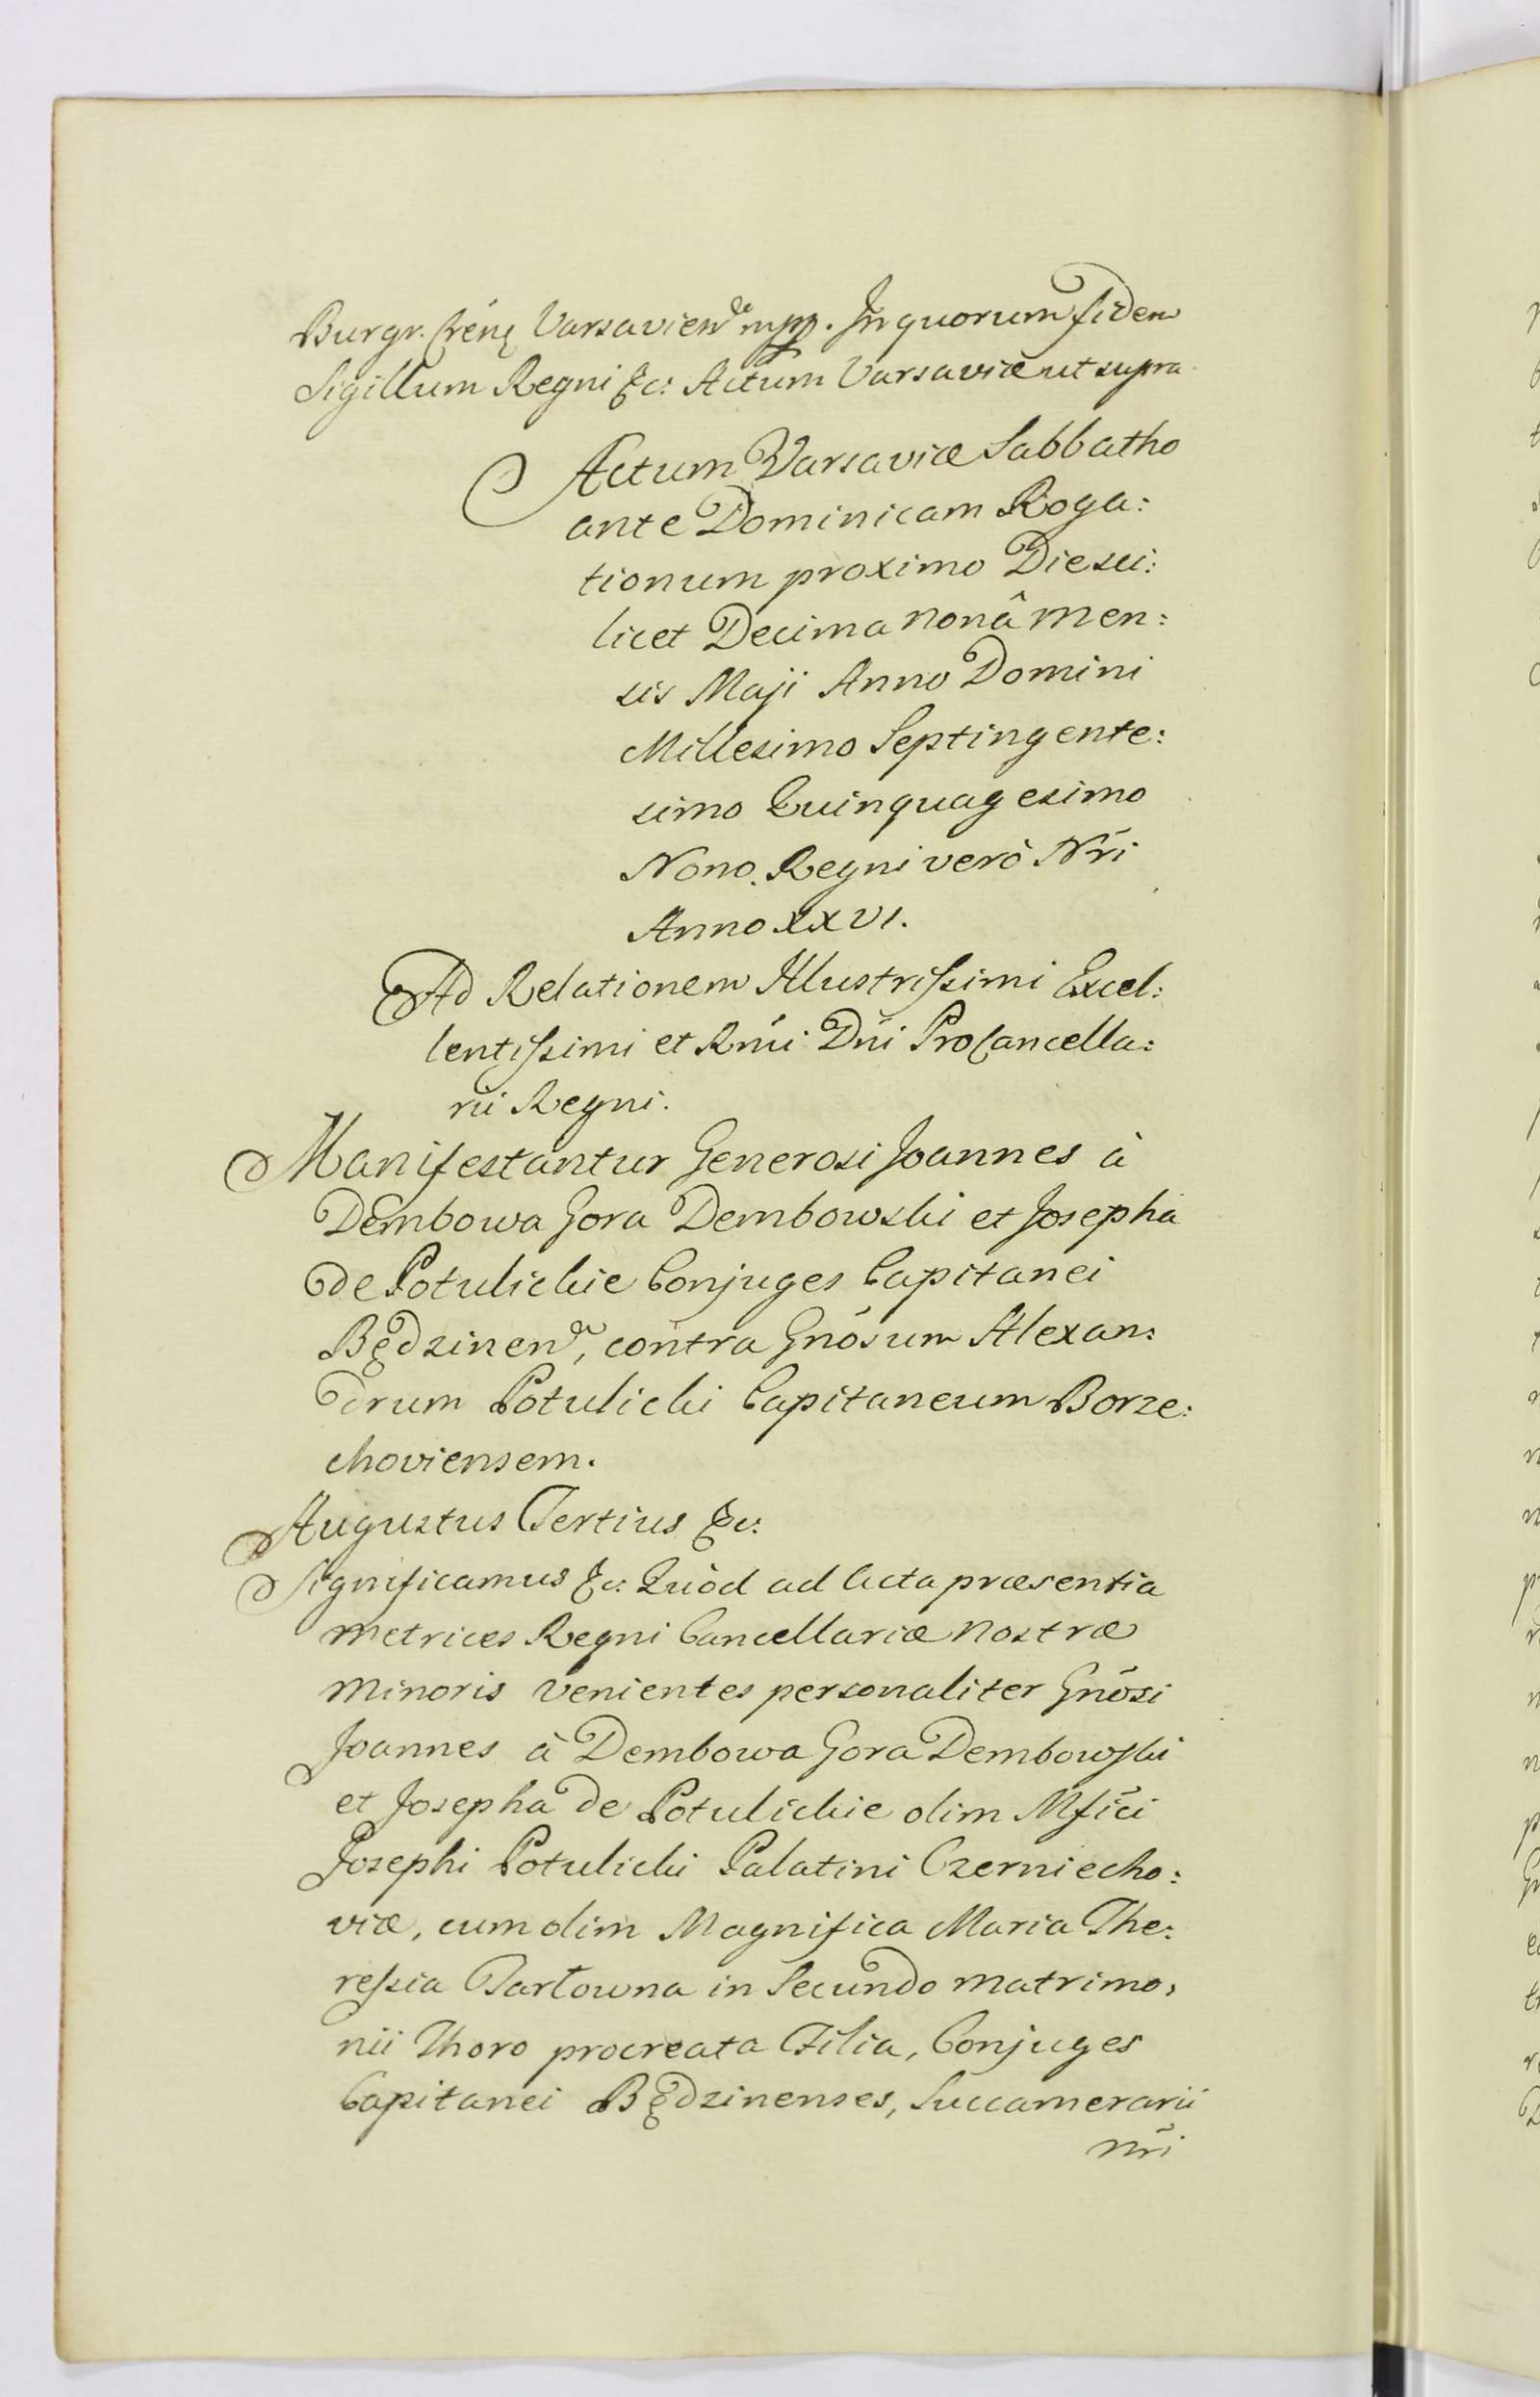 Burgr. Crēnę Varsavien̄ mpp. In quorum fidem
Sigillum Regni &c: Actum Varsaviæ ut supra.
Actum Varsaviæ Sabbatho
ante Dominicam Roga:
tionum proximo Die sci:
licet Decima nonâ Men:
sis Maji Anno Domini
Millesimo Septingente:
simo Quinquagesimo
Nono. Regni verò Nr̄i
Anno XXVI.
Ad Relationem Illustrissimi Excel:
lentissimi et Rm̄i Dn̄i ProCancella:
rii Regni.
Manifestantur Generosi Joannes à
Dembowa Gora Dembowski et Josepha
de Potulickie Conjuges Capitanei
Będzinen̄, contra Gnōsum Alexan:
drum Potulicki Capitaneum Borze:
choviensem.
Augustus Tertius &c:
Significamus &c: Quòd ad Acta præsentia
Metrices Regni Cancellariæ Nostræ
Minoris venientes personaliter Gnōsi
Joannes à Dembowa Gora Dembowski
et Josepha de Potulickie olim Mfīci
Josephi Potulicki Palatini Czerniecho:
viæ, cum olim Magnifica Maria The:
ressia Tarłowna in Secundo matrimo:
nii Thoro procreata Filia, Conjuges
Capitanei Będzinenses, Succamerarii
nr̄i